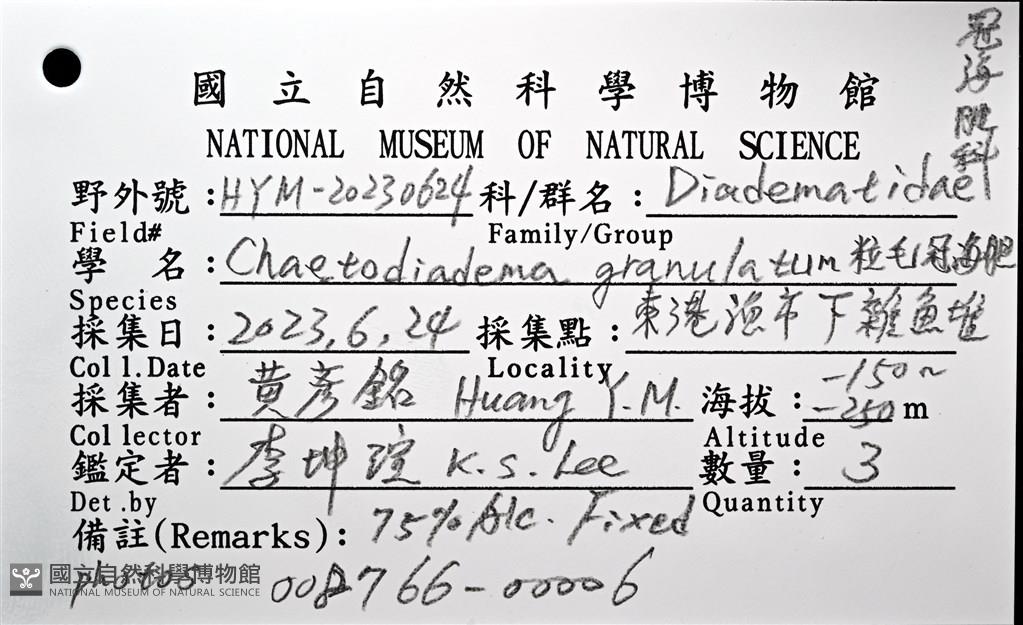 冠海胆科
國立自然科學博物館
NATIONAL MUSEUM OF NATURAL SCIENCE
野外號：HYM-20230624 科/群名：Diadematidae
Field# Family/Group
學名：Chaetodiadema granulatum 粒毛冠海胆
Species
採集日：2023,6,24 採集點：東港漁市下雜魚堆
Coll.Date Locality
採集者：黃彥銘 Huang Y.M. 海拔：-150~-250m
Collector Altitude
鑑定者：李坤瑄 K.S. Lee 數量：3
Det.by Quantity
備註(Remarks)：75% Alc. Fixed
photos 008766-00006
國立自然科學博物館
NATIONAL MUSEUM OF NATURAL SCIENCE